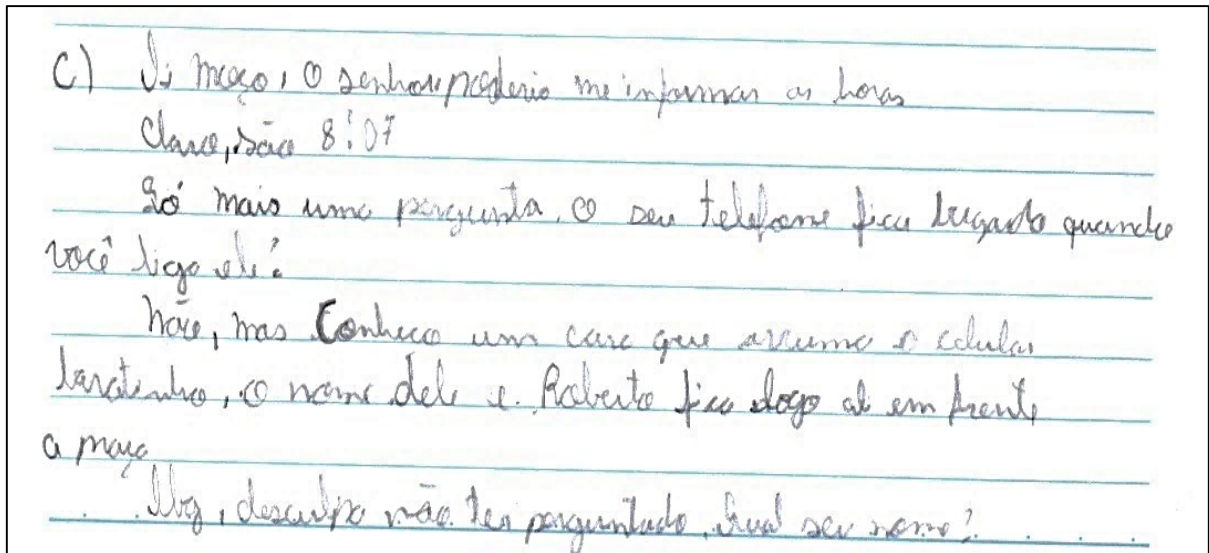 C) Oi moço, o senhor poderia me informar as horas
Claro, são 8:07
Só mais uma pergunta, o seu telefone fica bugado quando
você liga ele?
Não, mas Conheço um cara que arruma o celular
baratinho, o nome dele e Roberto fica logo ali em frente
a
Obg, desculpa não ter perguntado, Qual seu nome?